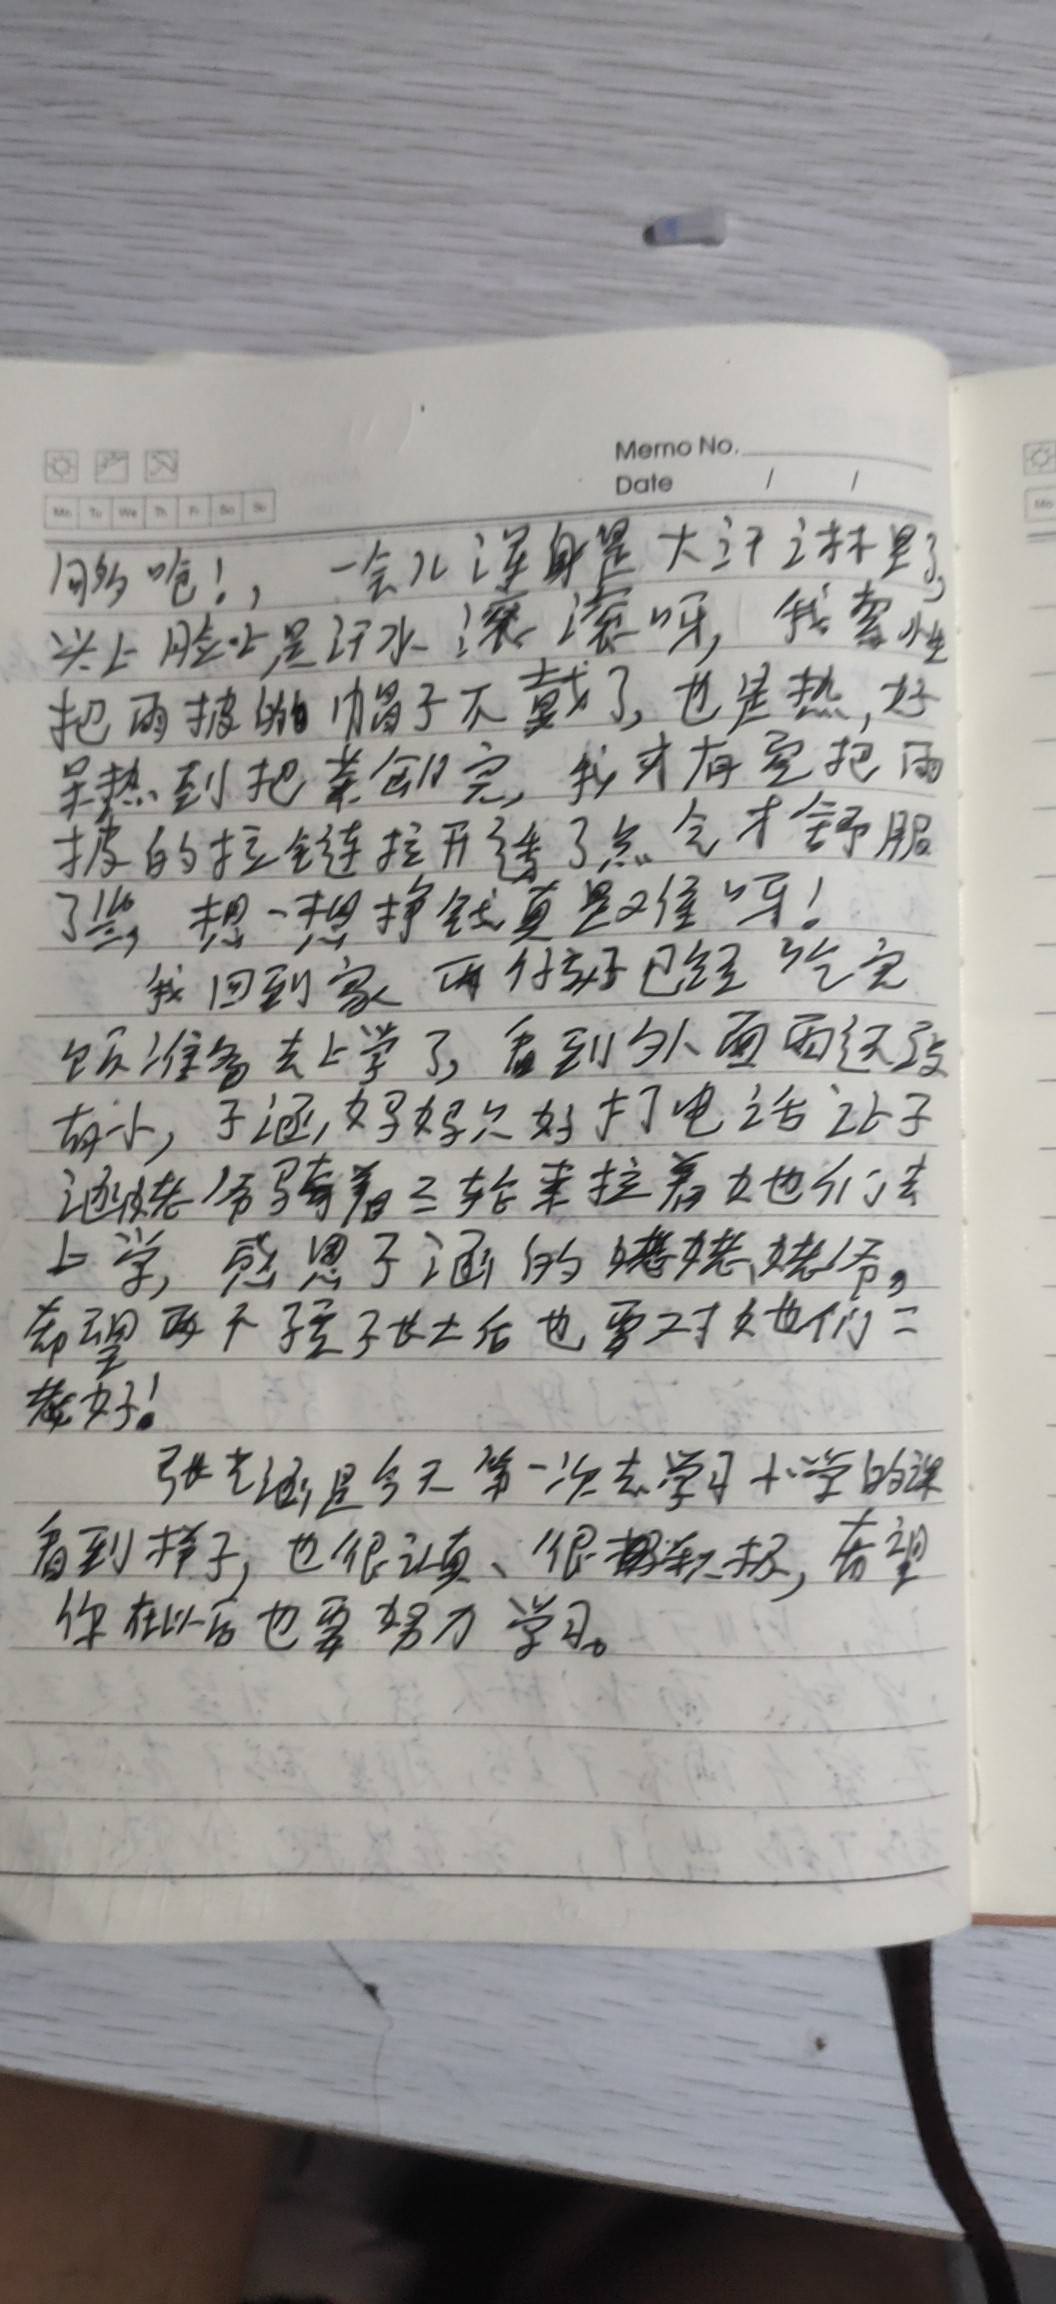 Memo No.
Date / /
Mo Tu We Th Fr Sa Su
一会儿浑身是大汗淋里了,
头上脸上是汗水滚滚呀, 我索性
把雨披的帽子不戴了, 也是热, 好
呆热到把菜创完, 我才有空把雨
披的拉链拉开透了点 会才舒服
了些, 想一想挣钱真是难呀!
我回到家 两个孩子已经吃完
饭准备去上学了, 看到外面雨还没
有小, 子涵妈妈只好打电话让子
涵姥爷骑着三轮来拉着她们去
上学, 感恩子涵的姥姥、姥爷,
希望两个孩子长大后也要对她们二
老好!
张子涵是今天第一次去学习小学的课
看到样子, 也很认真、很积极, 希望
你在以后也要努力学习。